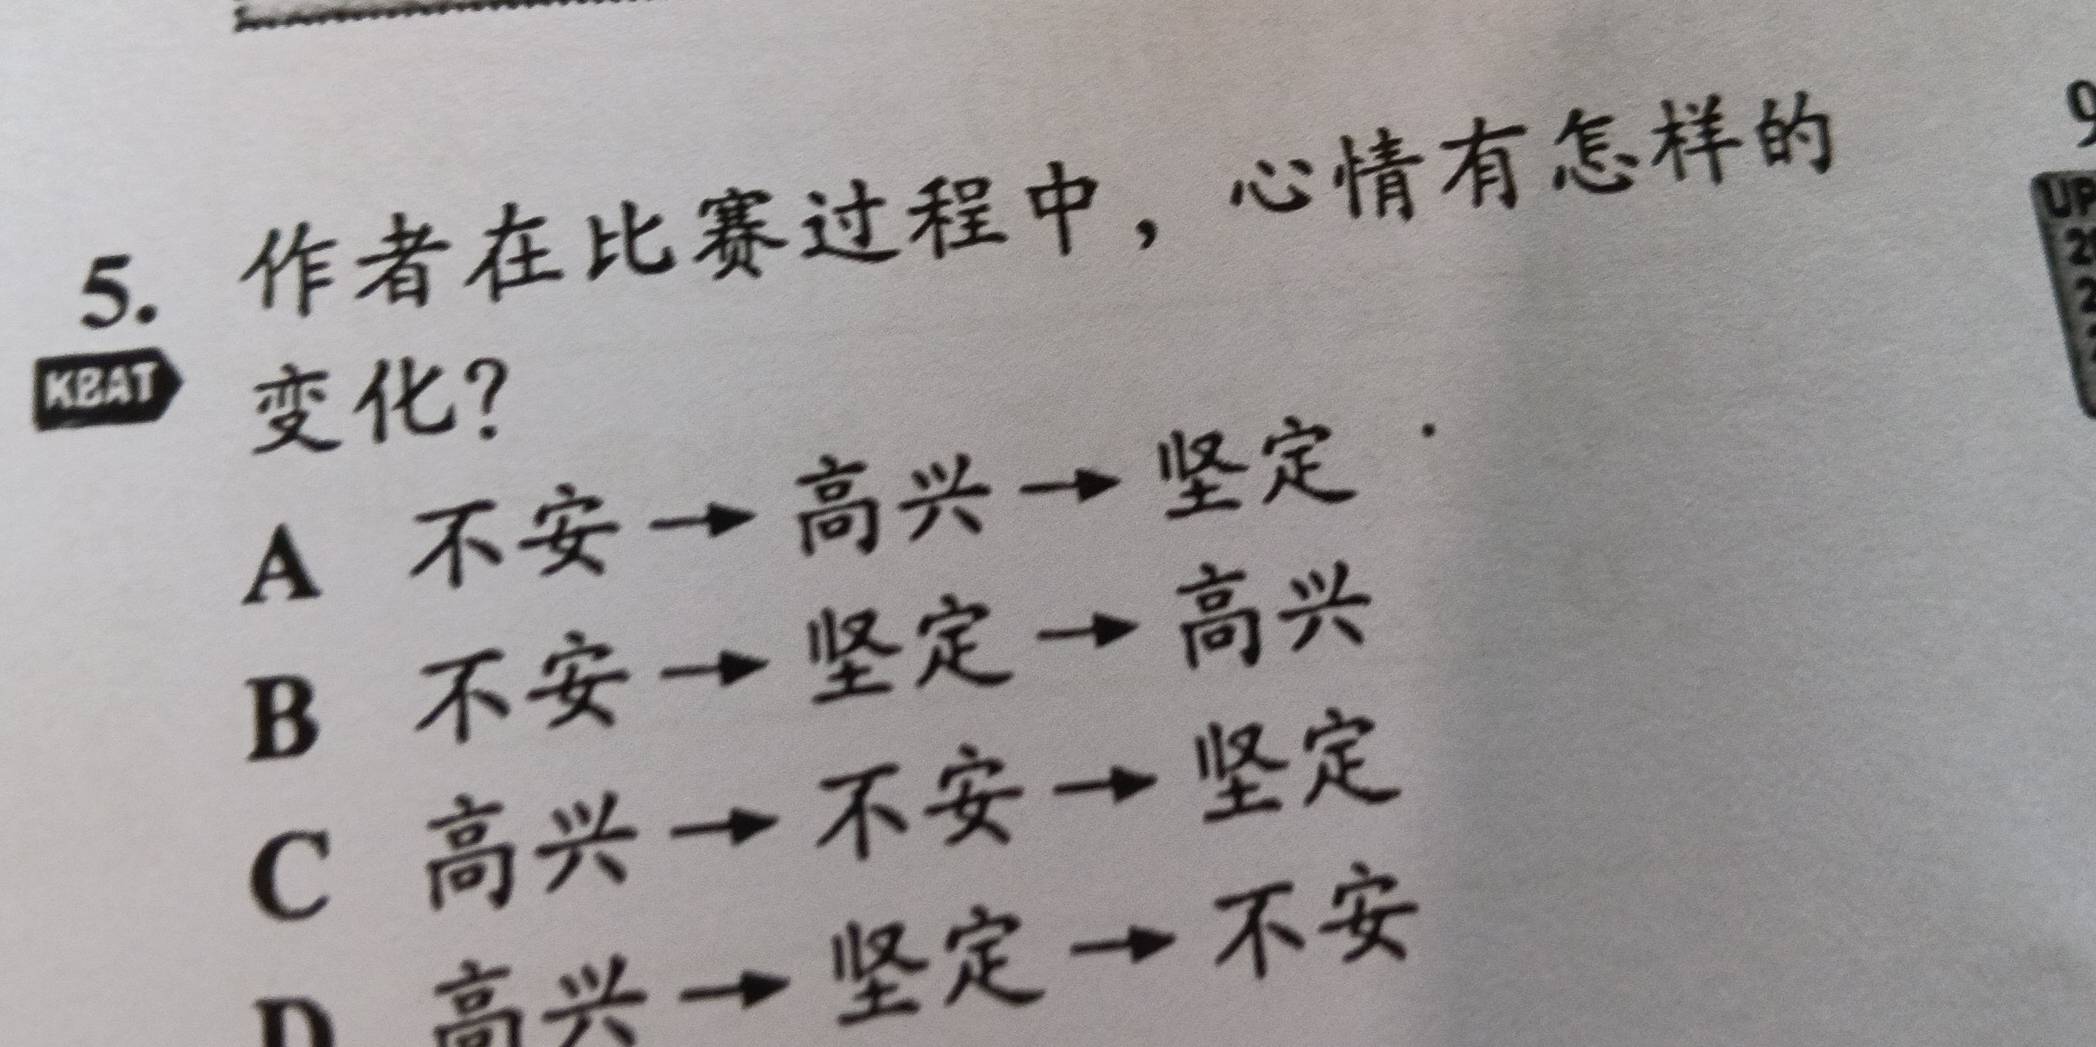 5. 作者在比赛过程中，心情有怎样的
KBAT 变化？
A 不安→高兴→坚定
B 不安→坚定→高兴
C 高兴→不安→坚定
D 高兴→坚定→不安